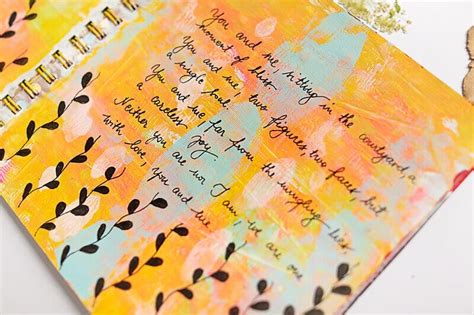 You and me, sitting in the courtyard, a
moment of bliss
You and me, two figures, two faces, but
a single soul
You and me far from the
a careless joy
Neither you are nor I am, we are one
with love. You and me